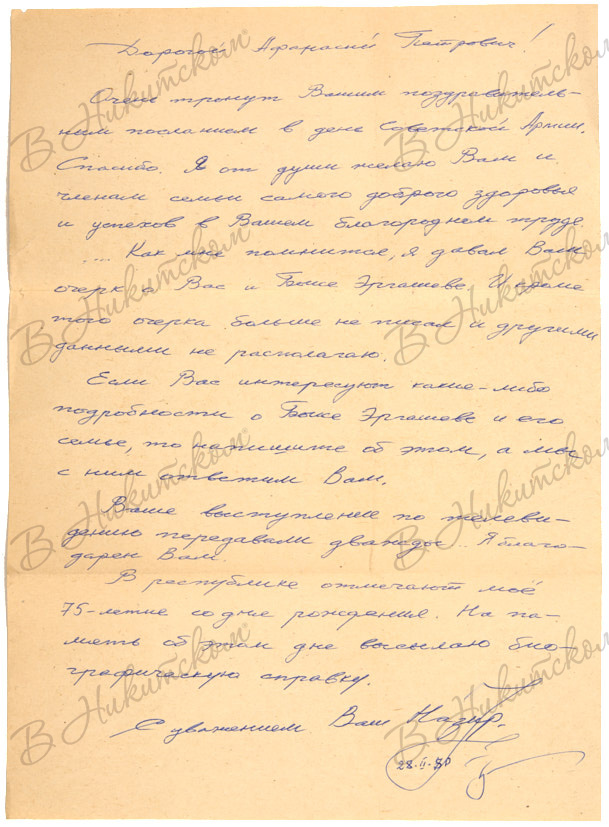 Дорогой Афанасий Петрович!
Очень тронут Вашим поздравитель-
ным посланием в день Советской Армии.
Спасибо. Я от души желаю Вам и
членам семьи самого доброго здоровья
и успехов в Вашем благородном труде.
... Как мне помнится, я давал Вам
очерк о Вас и Бокше Эргашеве. И кроме
того очерка больше не писал и другими
данными не располагаю.
Если Вас интересуют какие-либо
подробности о Эргашеве и его
семье, то напишите об этом, а мы
с ним ответим Вам.
Ваше выступление по телеви-
дению передавали дважды... Я благо-
дарен Вам.
В республике отмечают моё
75-летие со дня рождения. На па-
мять об этом дне высылаю био-
графическую справку.
С уважением Ваш Назир.
28.II.80
В Никитском
В Никитском
В Никитском
В Никитском
В Никитском
В Никитском
В Никитском
В Никитском